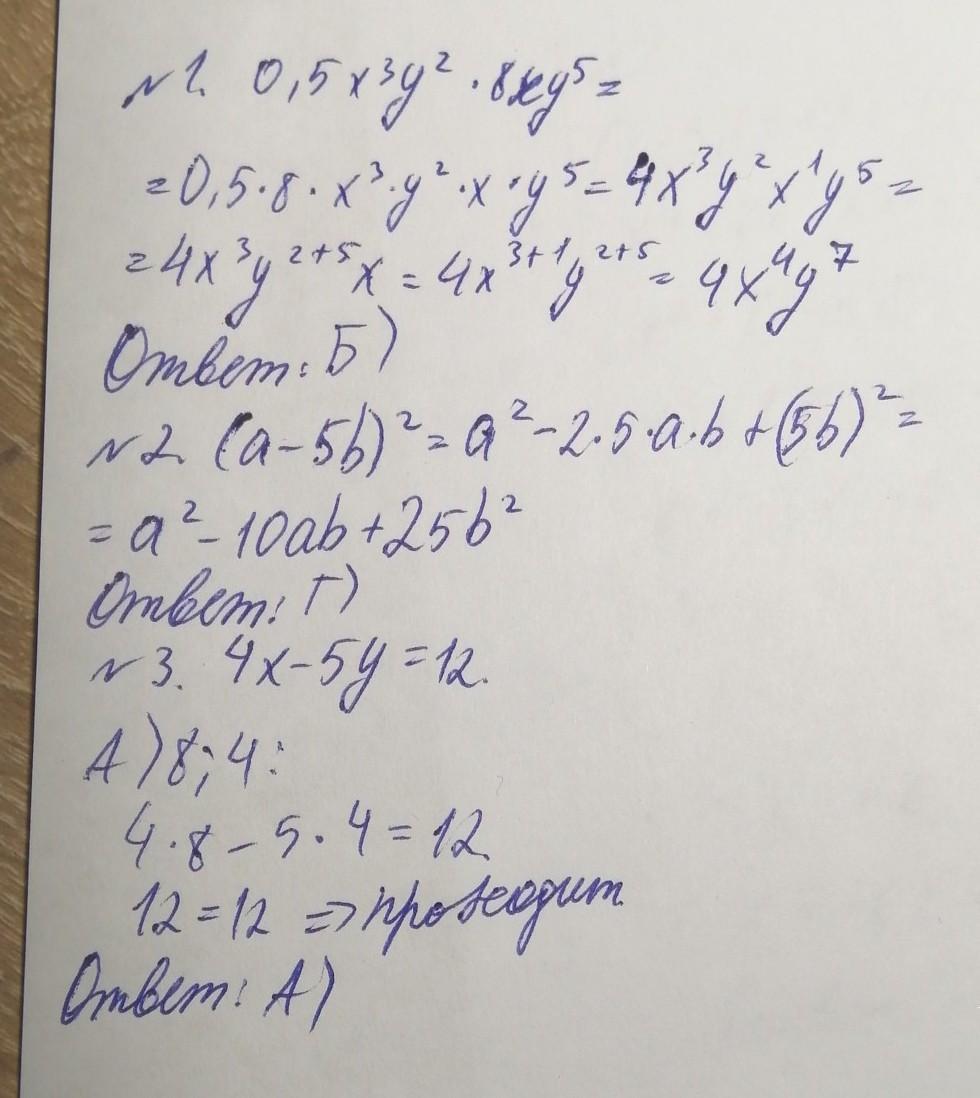 №1. 0,5x³y² · 8xy⁵ =
= 0,5 · 8 · x³ · y² · x · y⁵ = 4x³y²x¹y⁵ =
= 4x³y²⁺⁵x = 4x³⁺¹y²⁺⁵ = 4x⁴y⁷
Ответ: Б)
№2. (a - 5b)² = a² - 2 · 5 · a · b + (5b)² =
= a² - 10ab + 25b²
Ответ: Г)
№3. 4x - 5y = 12.
А) 8; 4:
4 · 8 - 5 · 4 = 12.
12 = 12 => проходит
Ответ: А)